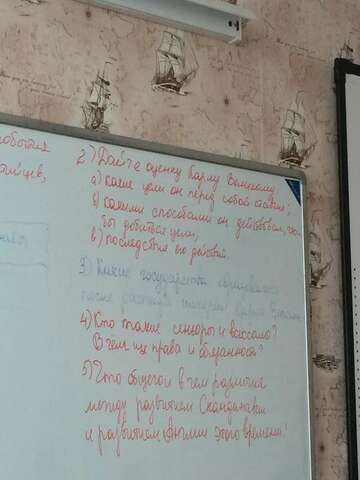 события
2) Дайте оценку Карлу Великому
а) какие цели он перед собой ставил;
б) какими способами он действовал, что-
бы добиться цели,
в) последствия его действий.
3) Какие государства образовались
после распада империи Карла Великого
4) Кто такие сеньоры и вассалы?
В чём их права и обязанности?
5) Что общего и в чём различия
между развитием Скандинавии
и развитием Англии этого времени?